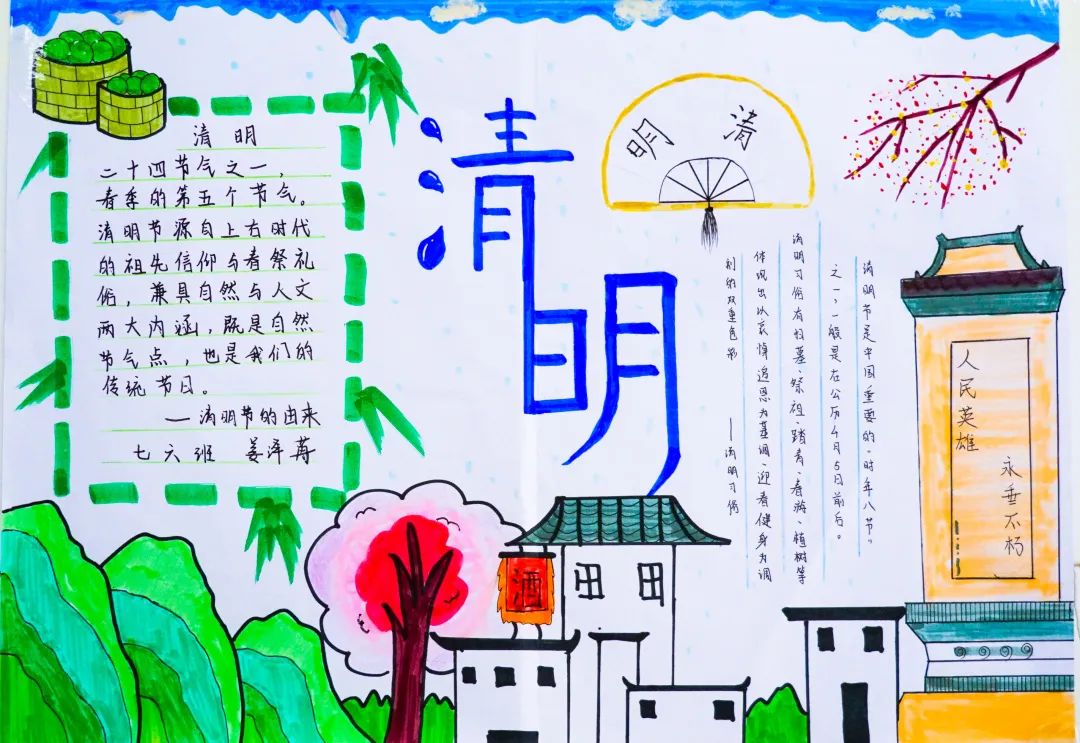 清明
二十四节气之一，
春季的第五个节气。
清明节源自上古时代
的祖先信仰与春祭礼
俗，兼具自然与人文
两大内涵，既是自然
节气点，也是我们的
传统节日。
—清明节的由来
七六班 姜泽苒
清明
清明
清明节是中国重要的“时年八节”
之一，一般是在公历4月5日前后。
清明习俗有扫墓、祭祖、踏青、春游、植树等
体现出以哀悼追恩为基调、迎春健身为调
剂的双重色彩
——清明习俗
人民英雄
永垂不朽
酒